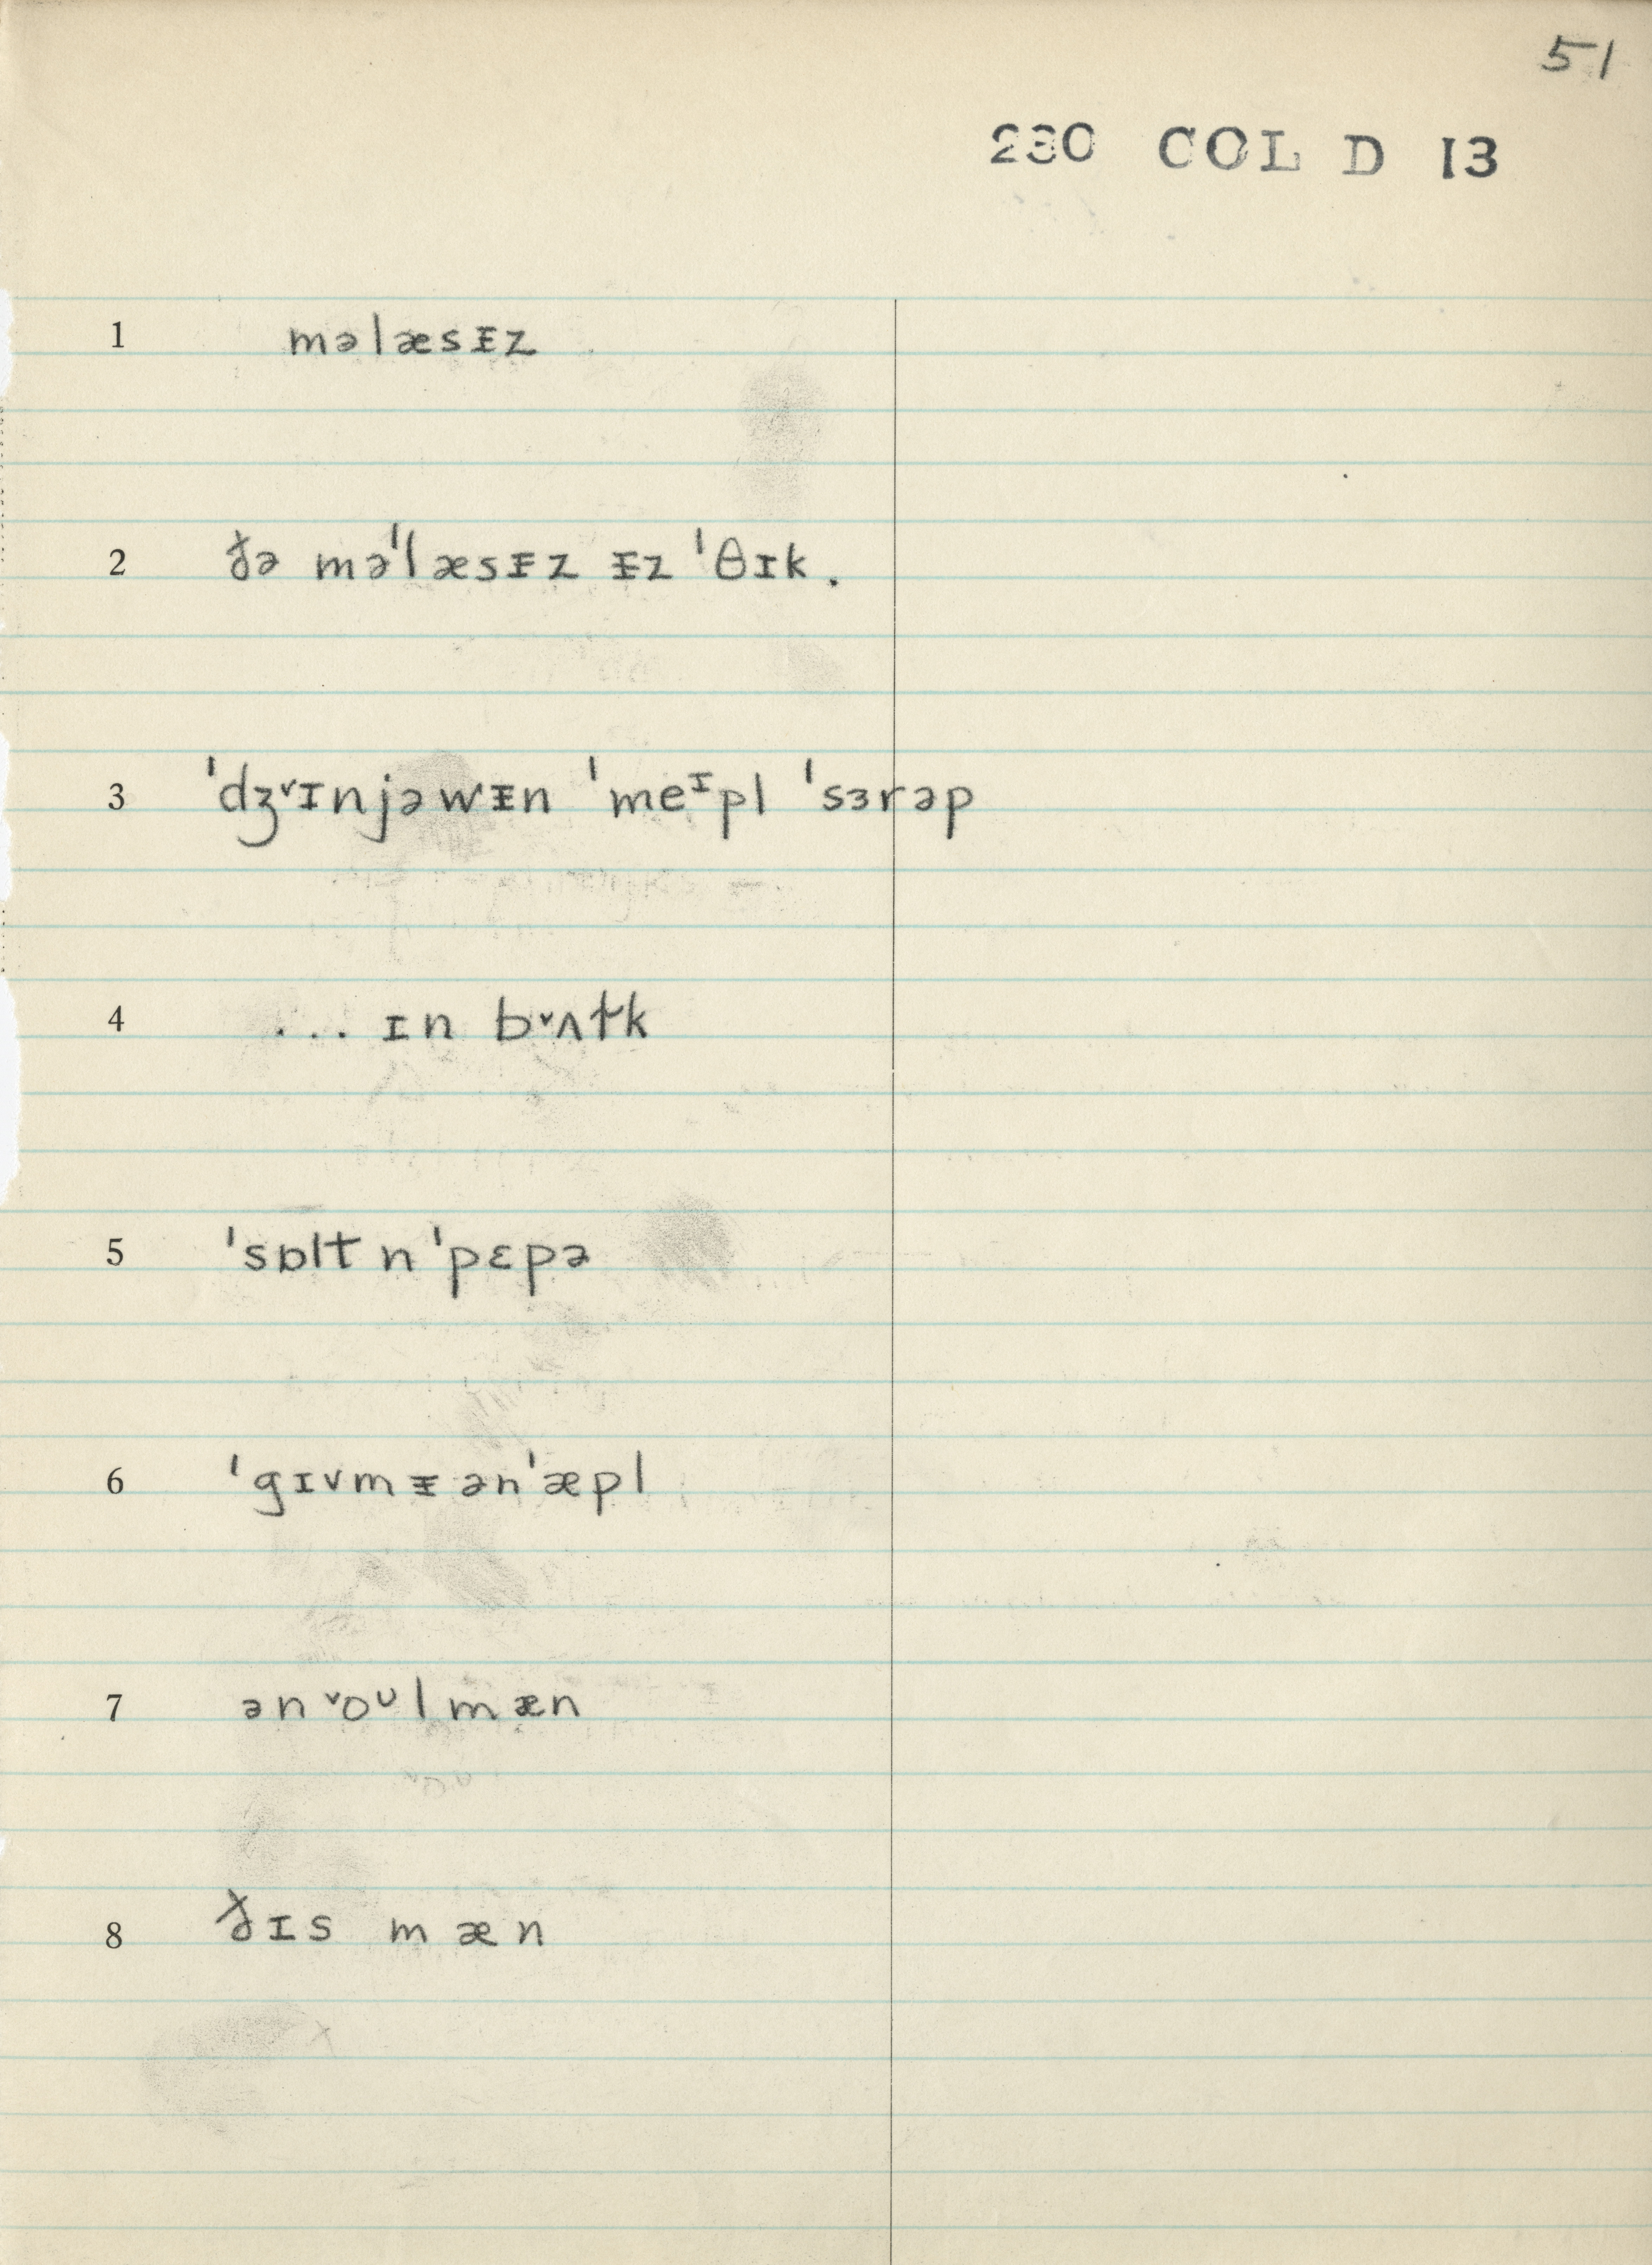 51
230 COL D 13
1 məlæsᵻz
2 ðə məˈlæsᵻz ᵻz ˈθɪk.
3 ˈdʒ˅ɪnjəwᵻn ˈmeᶦpl ˈsɜrəp
4 ... ɪn b˅ʌɫk
5 ˈsɒlt n ˈpɛpə
6 ˈgɪvmᵻ ən ˈæpl
7 ən ˅oᶷl mæn
8 ðɪs mæn